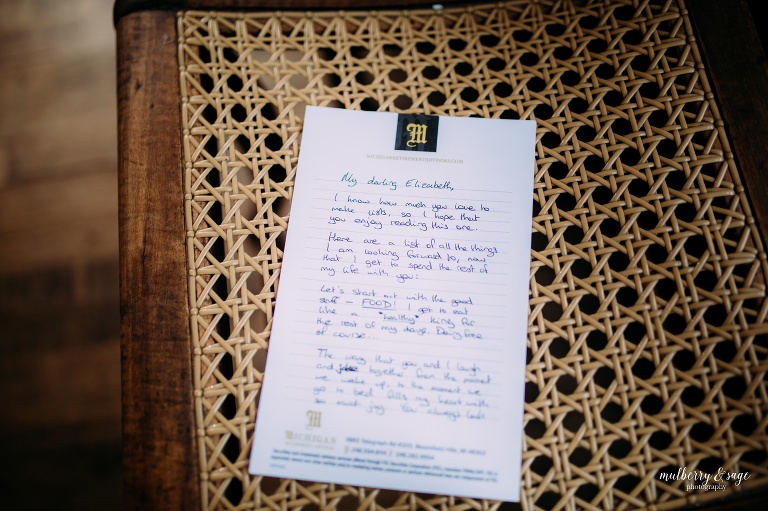 M
My darling Elizabeth,
I know how much you love to
make lists, so I hope that
you enjoy reading this one.
Here are a list of all the things
I am looking forward to, now
that I get to spend the rest of
my life with you:
Let's start out with the good
stuff – FOOD! I get to eat
like a "healthy" king for
the rest of my days. Dairy free
of course...
The way that you and I laugh
and together from the moment
we wake up, to the moment we
go to bed fills my heart with
so much joy. You always
M
MICHIGAN
mulberry & sage
photography